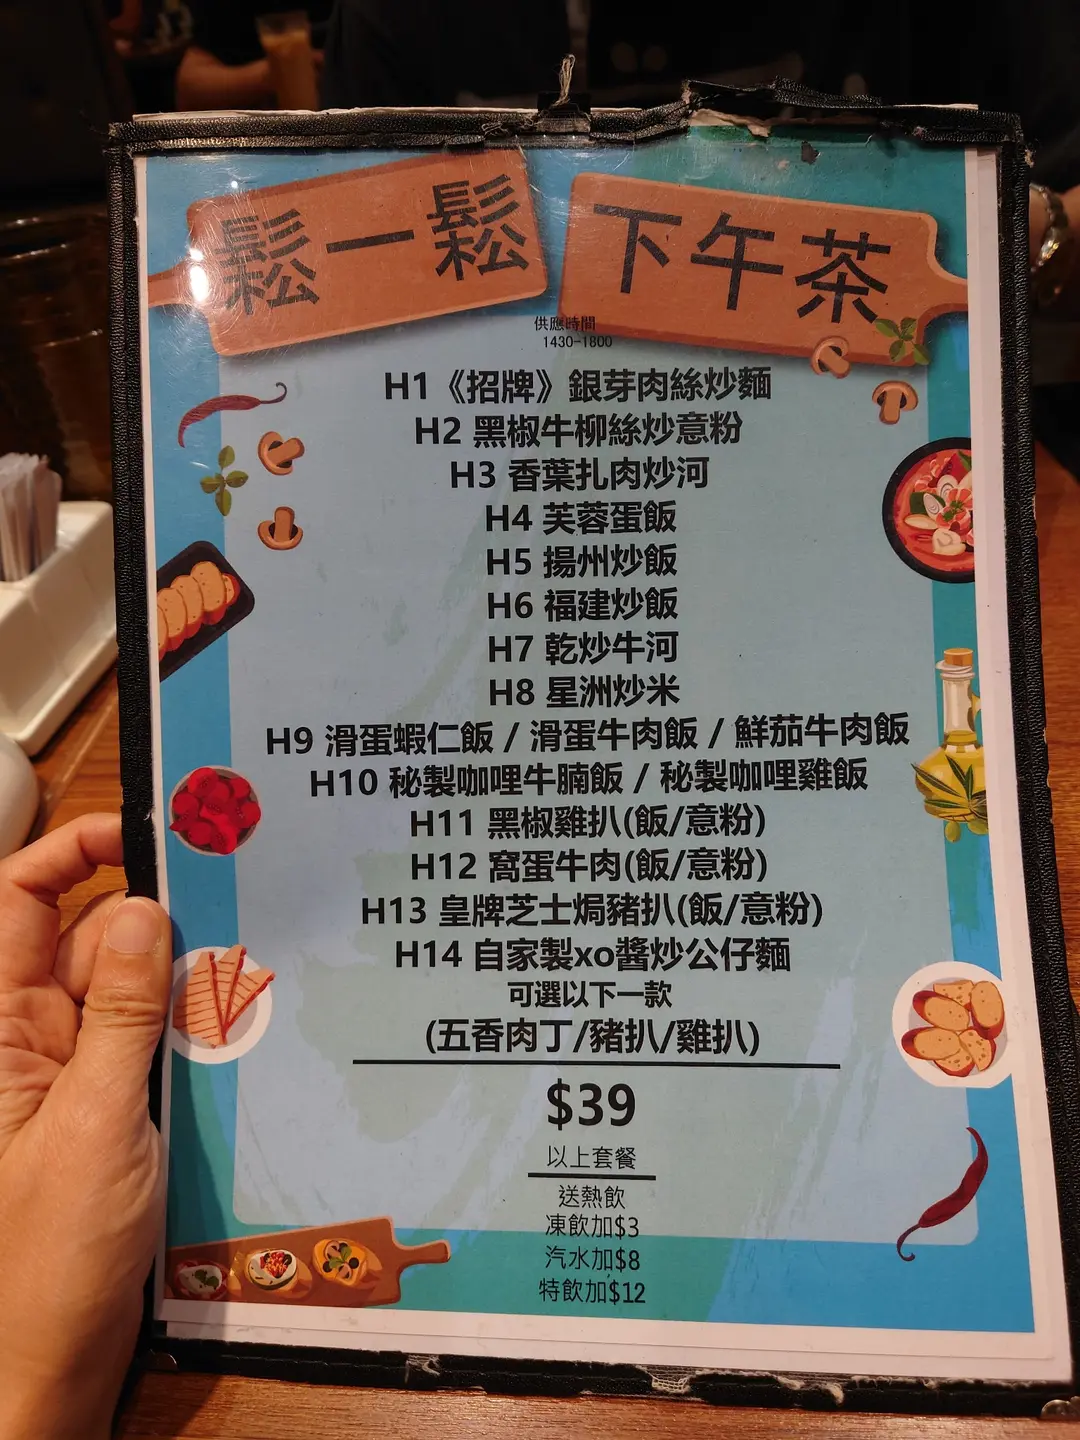 鬆一鬆 下午茶
供應時間
1430-1800
H1《招牌》銀芽肉絲炒麵
H2 黑椒牛柳絲炒意粉
H3 香葉扎肉炒河
H4 芙蓉蛋飯
H5 揚州炒飯
H6 福建炒飯
H7 乾炒牛河
H8 星洲炒米
H9 滑蛋蝦仁飯 / 滑蛋牛肉飯 / 鮮茄牛肉飯
H10 秘製咖哩牛腩飯 / 秘製咖哩雞飯
H11 黑椒雞扒(飯/意粉)
H12 窩蛋牛肉(飯/意粉)
H13 皇牌芝士焗豬扒(飯/意粉)
H14 自家製xo醬炒公仔麵
可選以下一款
(五香肉丁/豬扒/雞扒)
$39
以上套餐
送熱飲
凍飲加$3
汽水加$8
特飲加$12